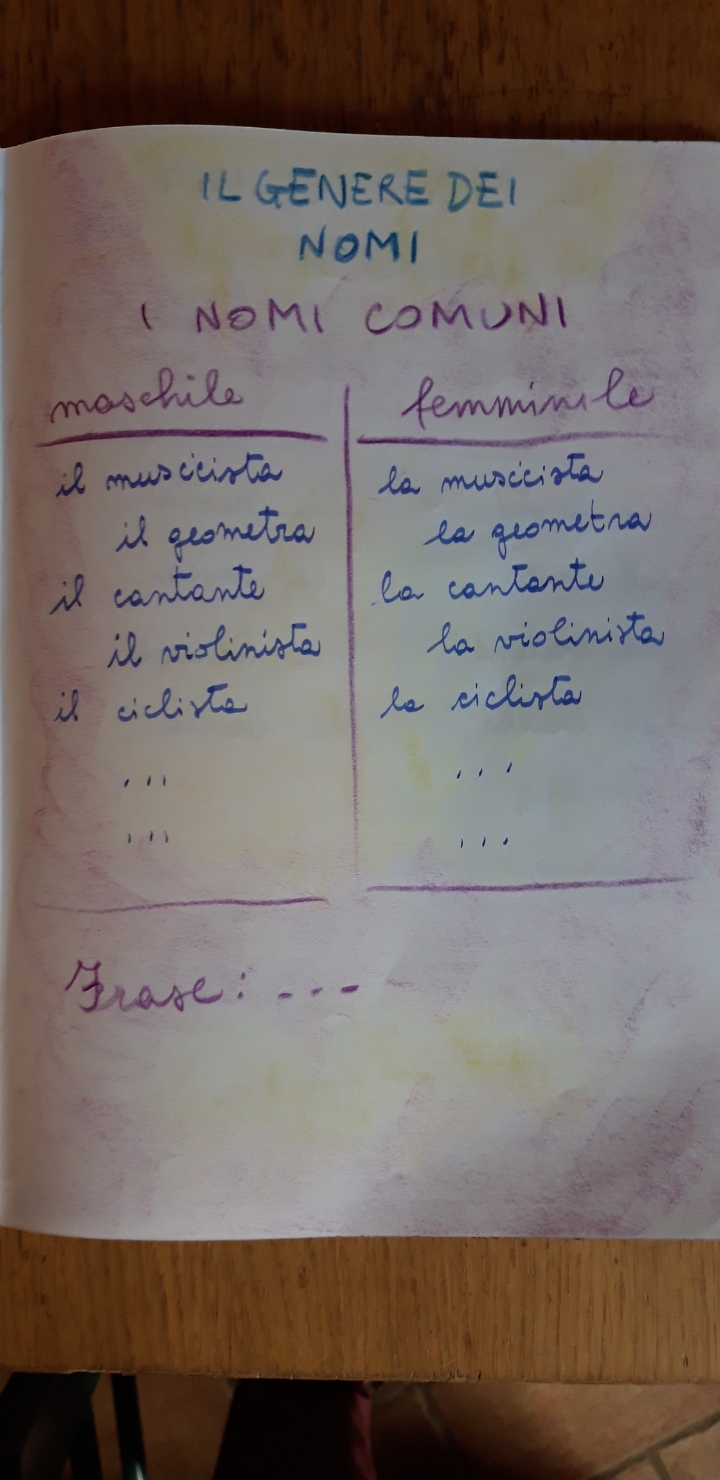 IL GENERE DEI
NOMI
I NOMI COMUNI
maschile femminile
il muscicista la muscicista
il geometra la geometra
il cantante la cantante
il violinista la violinista
il ciclista la ciclista
... ...
... ...
Frase: ---